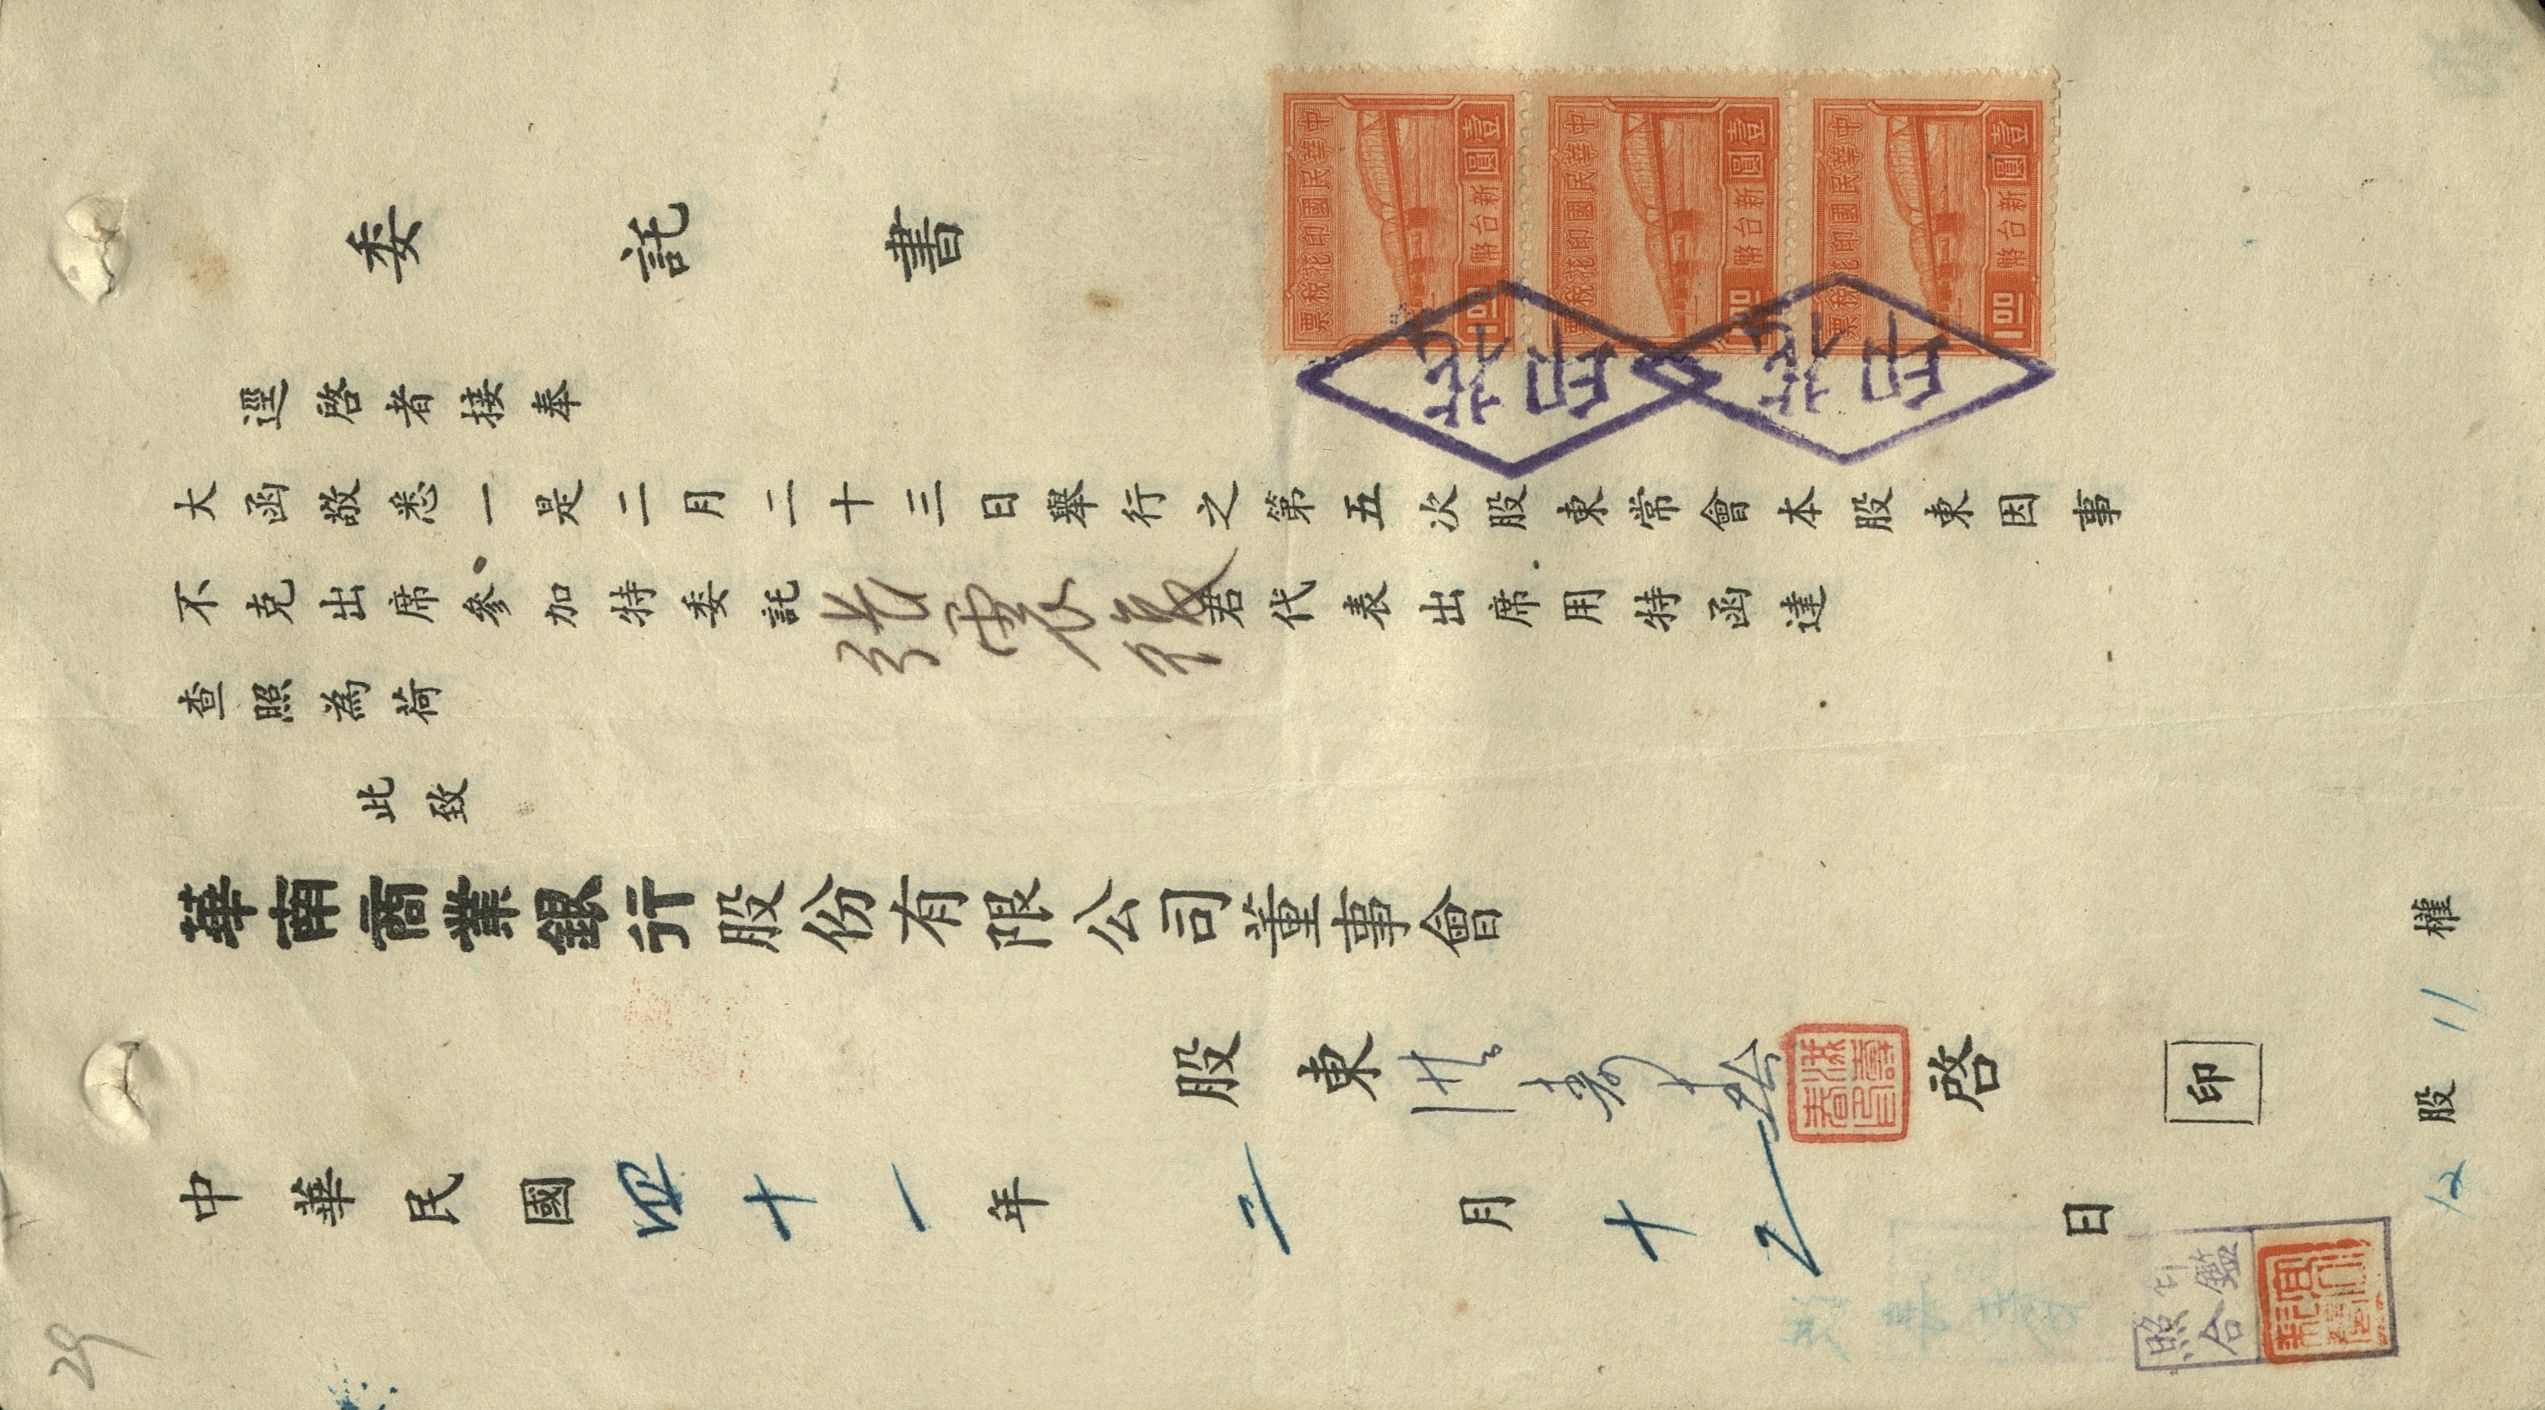 委託書
逕啓者接奉
大函敬悉一是二月二十三日舉行之第五次股東常會本股東因事
不克出席參加特委託張君代表出席用特函達
查照為荷
此致
華南商業銀行股份有限公司董事會
股東洪壽 啓 印
中華民國四十一年二月十 日
12股 11權
中華民國印花稅票
壹圓 新台幣 1.00
中華民國印花稅票
壹圓 新台幣 1.00
中華民國印花稅票
壹圓 新台幣 1.00
印花
印花
印鑑
照合
29